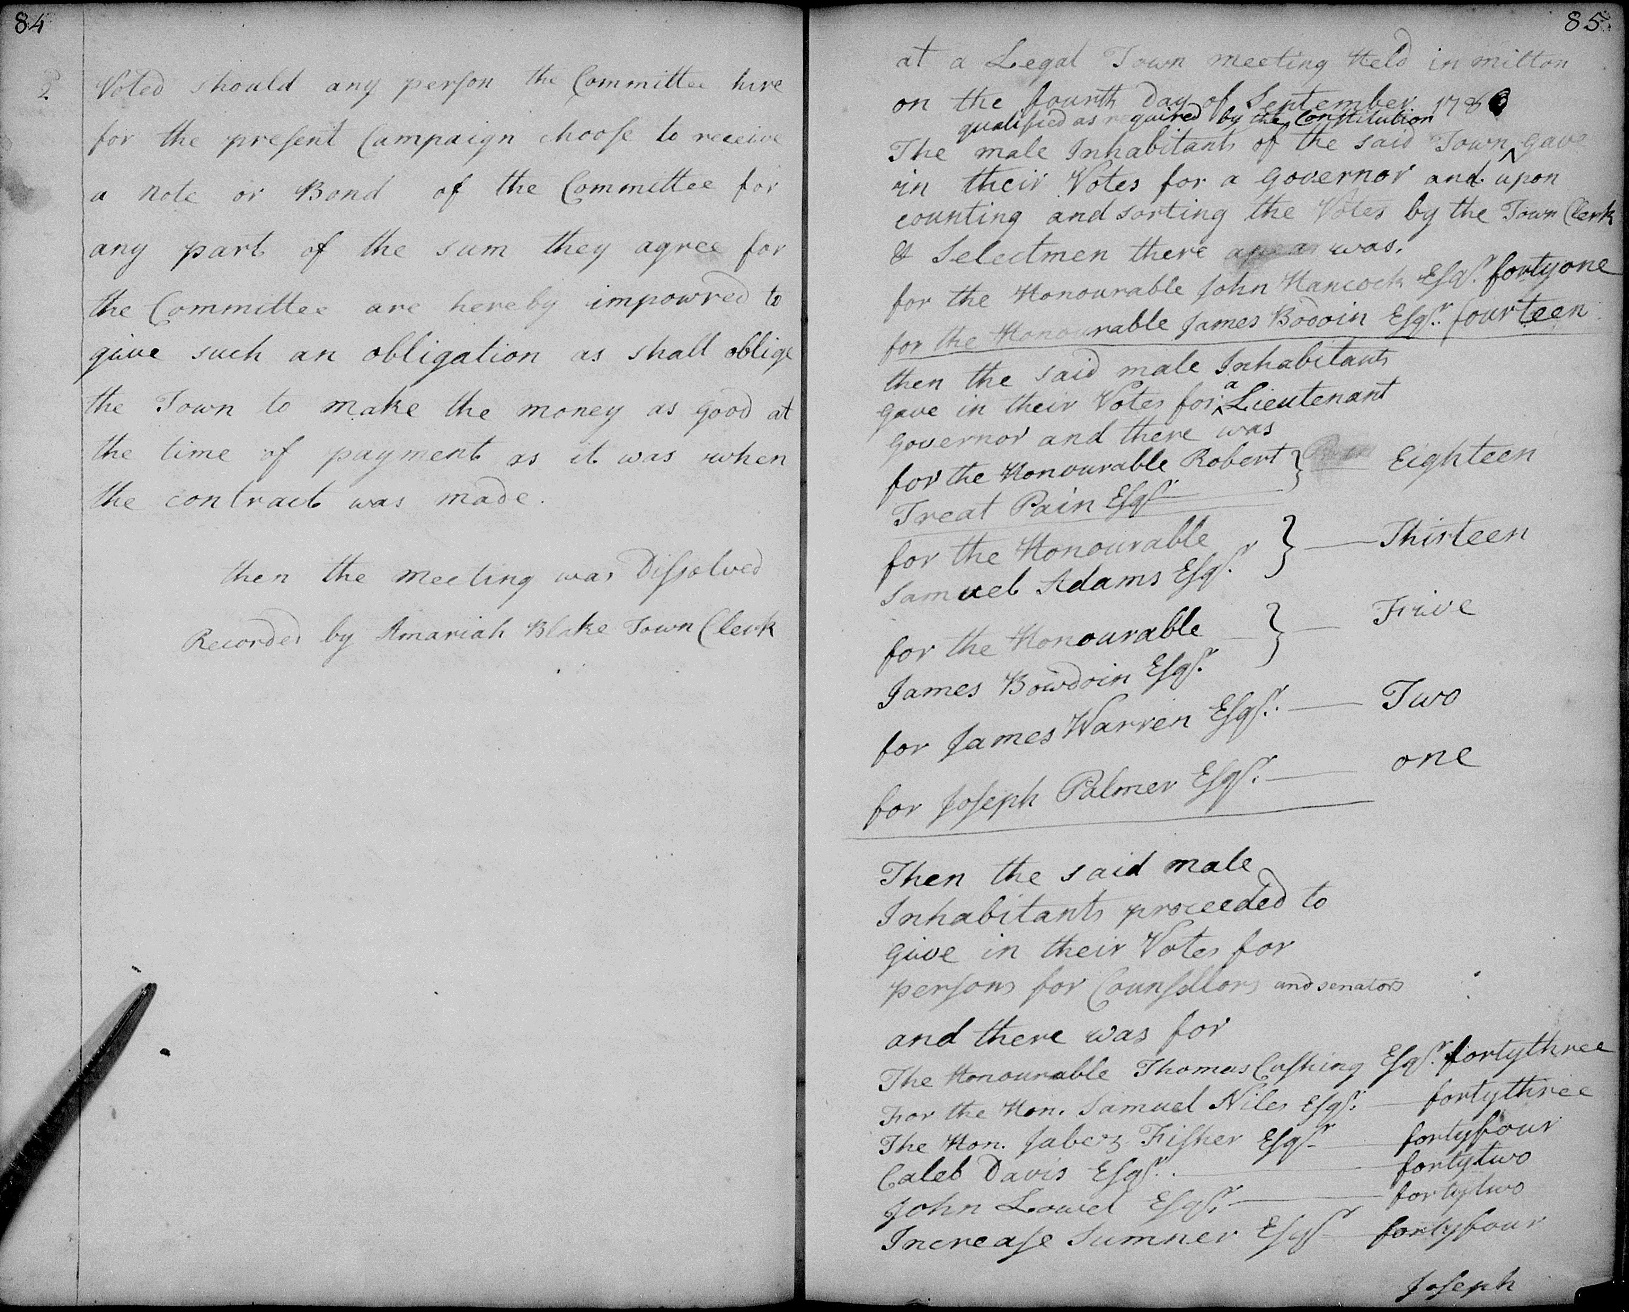 84
2 Voted should any person the Committee hire
for the present Campaign choose to receive
a note or Bond of the Committee for
any part of the sum they agree for
the Committee are hereby impowred to
give such an obligation as shall oblige
the Town to make the money as good at
the time of payment as it was when
the contract was made.
then the meeting was Dissolved
Recorded by Amariah Blake Town Clerk
85
at a Legal Town meeting Held in milton
on the fourth Day of September 178
qualified as required by the Constitution
The male Inhabitants of the said Town ^ gave
in their Votes for a Governor and upon
counting and sorting the Votes by the Town Clerk
& Selectmen there was.
for the Honourable John Hancock Esqr. fortyone
for the Honourable James Bodoin Esqr. fourteen
then the said male Inhabitants
gave in their Votes for ^a Lieutenant
Governor and there was
for the Honourable Robert } Eighteen
Treat Pain Esqr
for the Honourable } Thirteen
Samuel Adams Esqr.
for the Honourable } Frive
James Bowdoin Esqr.
for James Warren Esqr. Two
for Joseph Palmer Esqr. one
Then the said male
Inhabitants proceeded to
give in their Votes for
persons for Counsellors and senators
and there was for
The Honourable Thomas Cushing Esqr. fortythree
For the Hon. Samuel Niles Esqr. fortythree
The Hon. Jabez Fisher Esqr fortyfour
Caleb Davis Esqr. fortytwo
John Lowel Esqr. fortytwo
Increase Sumner Esqr fortyfour
Joseph